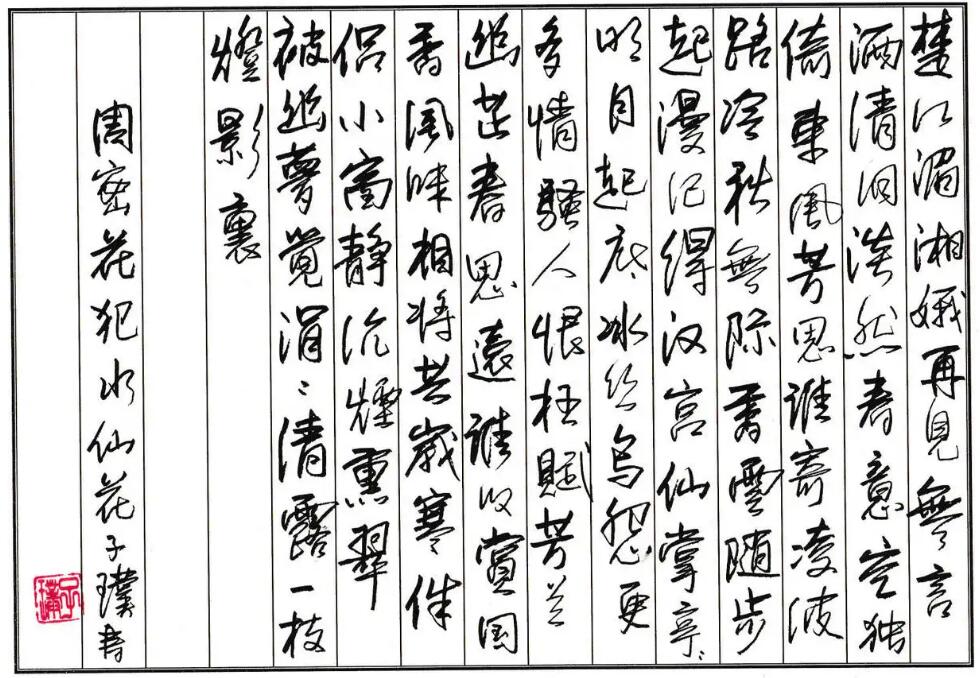 楚江湄湘娥再見無言
洒清泪淡然春意空独
倚東風芳思谁寄凌波
路冷秋無际香雲随步
起漫记得汉宫仙掌亭〻
明月起底冰丝写怨更
多情騷人恨枉賦芳兰
幽芷春思遠谁叹賞国
香風味相将共歲寒伴
侣小窗静沉煙熏翠
被幽夢覺涓〻清露一枝
燈影裏
周密花犯水仙花子璞書
子璞